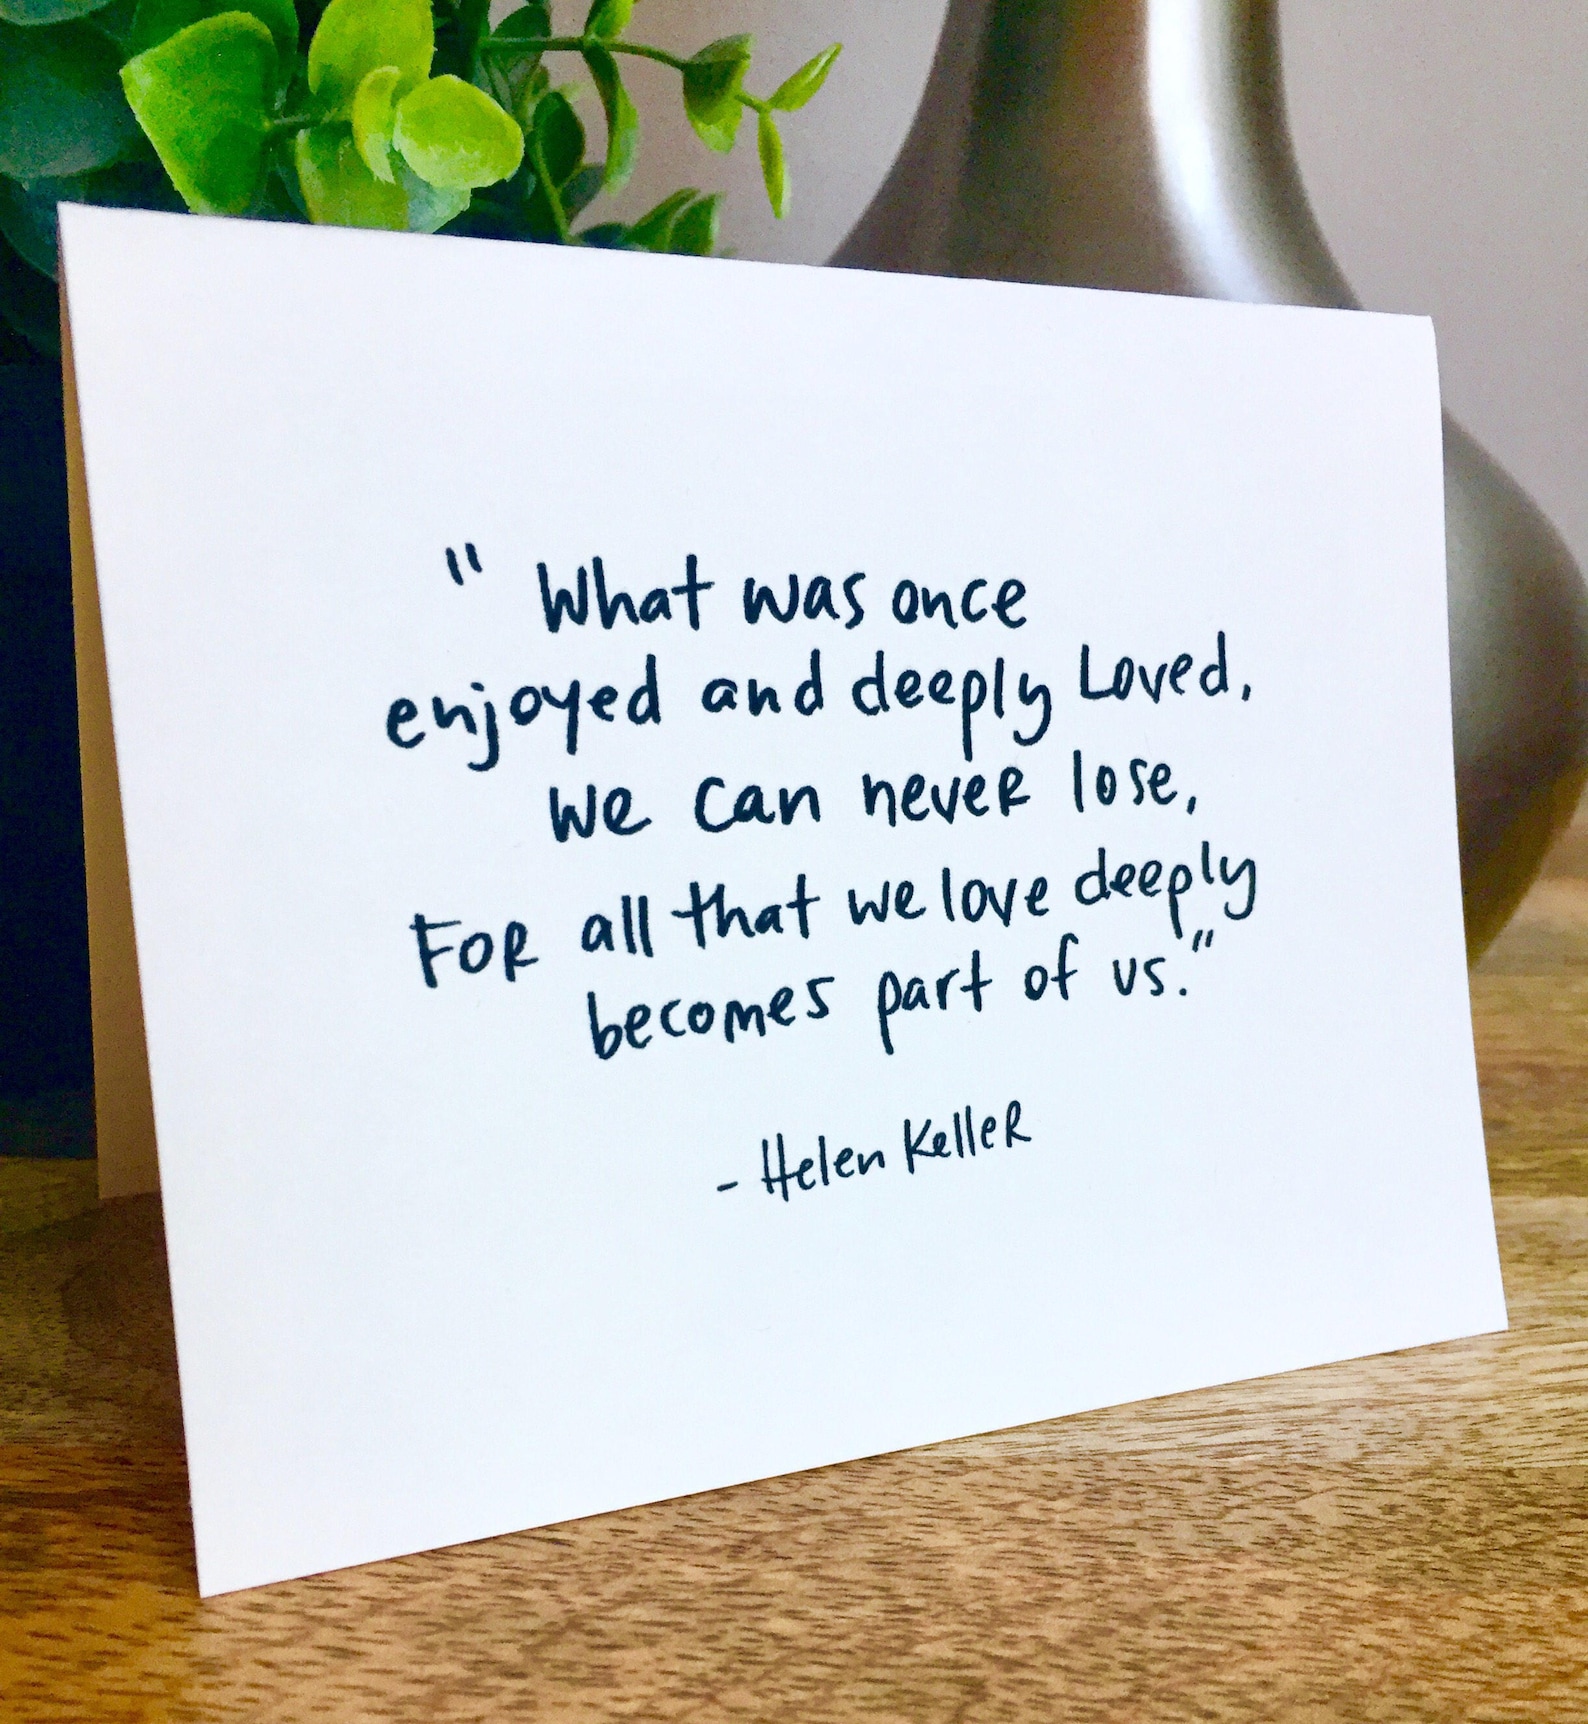 "What was once
enjoyed and deeply Loved,
we can never lose,
For all that we love deeply
becomes part of us."
- Helen Keller